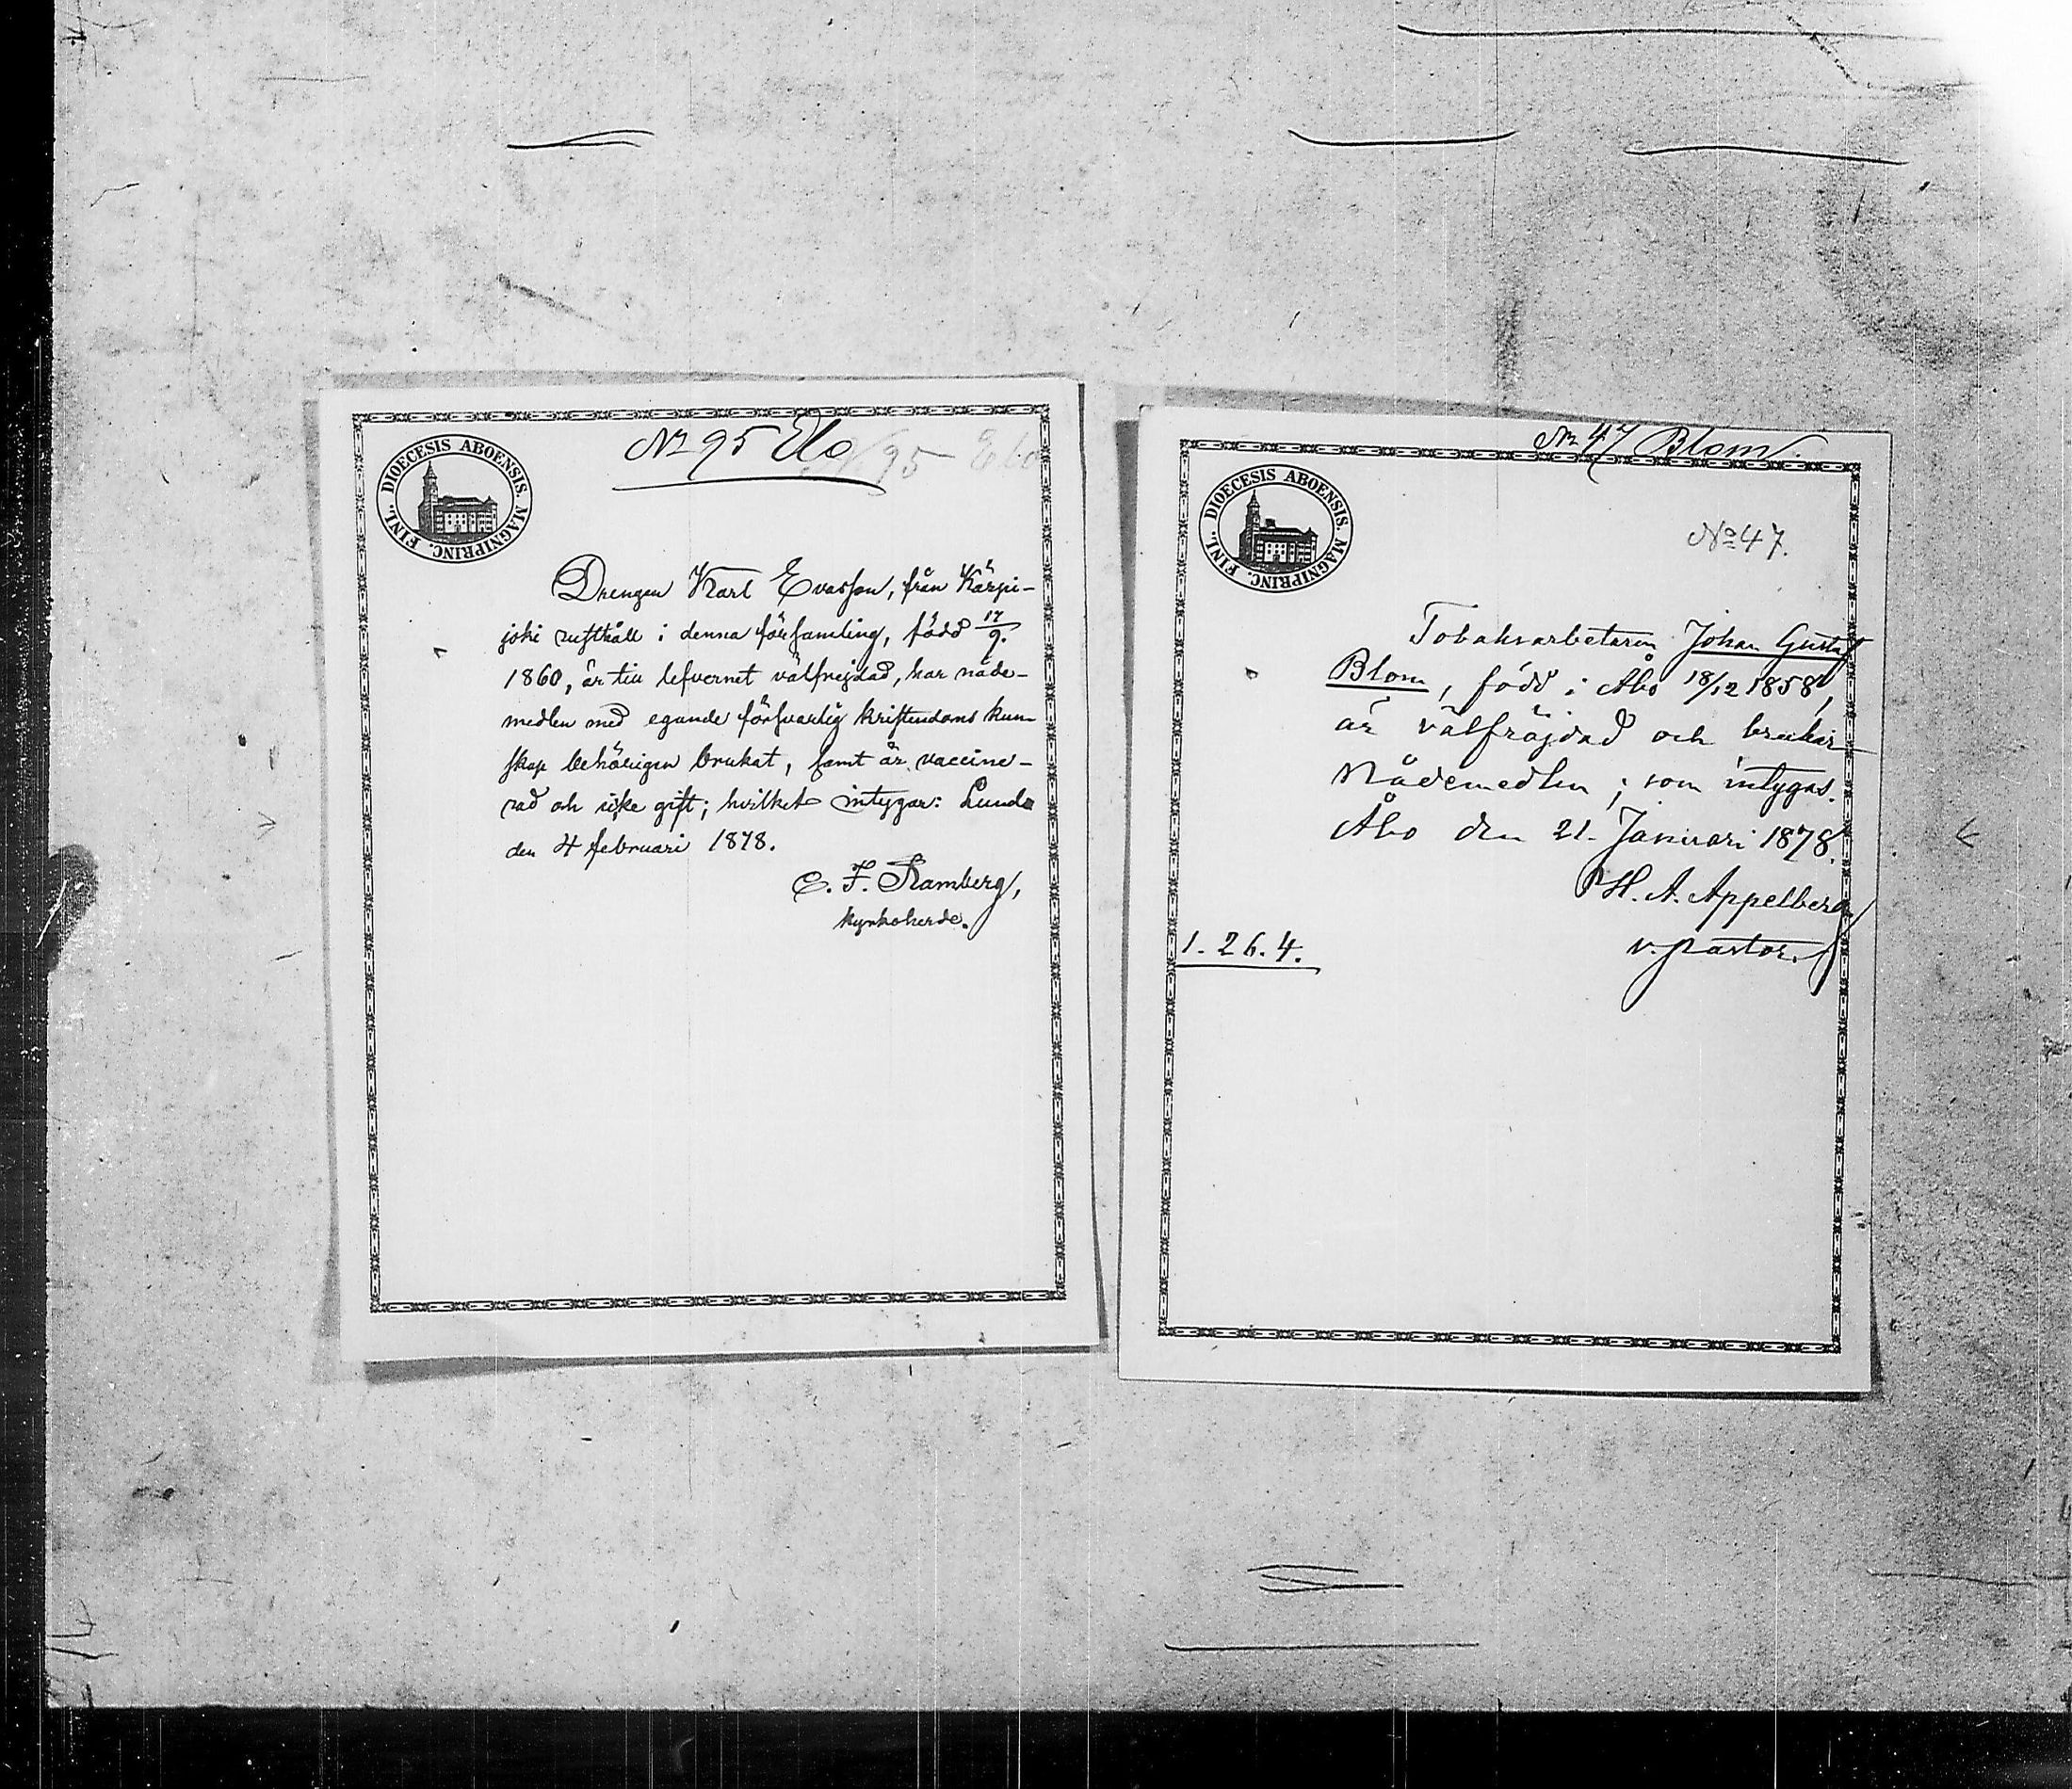 Nr 95 Elo
N 95 Elo
DIOECESIS ABOENSIS. MAGNIPRINC. FINL.
Drengen Karl Evasson, från Kärpi-
joki rusthåll i denna församling, född 17/9.
1860, är till lefvernet välfrejdad, har nåde-
medlen med egande försvarlig kristendoms kun-
skap behörigen brukat, samt är vaccine-
rad och icke gift; hvilket intygar: Lundo
den 4 februari 1878.
C. F. Stamberg,
kyrkoherde.
Nr 47 Blom.
DIOECESIS ABOENSIS. MAGNIPRINC. FINL.
No 47.
Tobaksarbetaren Johan Gustaf
Blom, född i Åbo 18/12 1858,
är välfräjdad och brukar
Nådemedlen; som intygas.
Åbo den 21. Januari 1878.
H. A. Appelberg
v. pastor.
1. 26. 4.